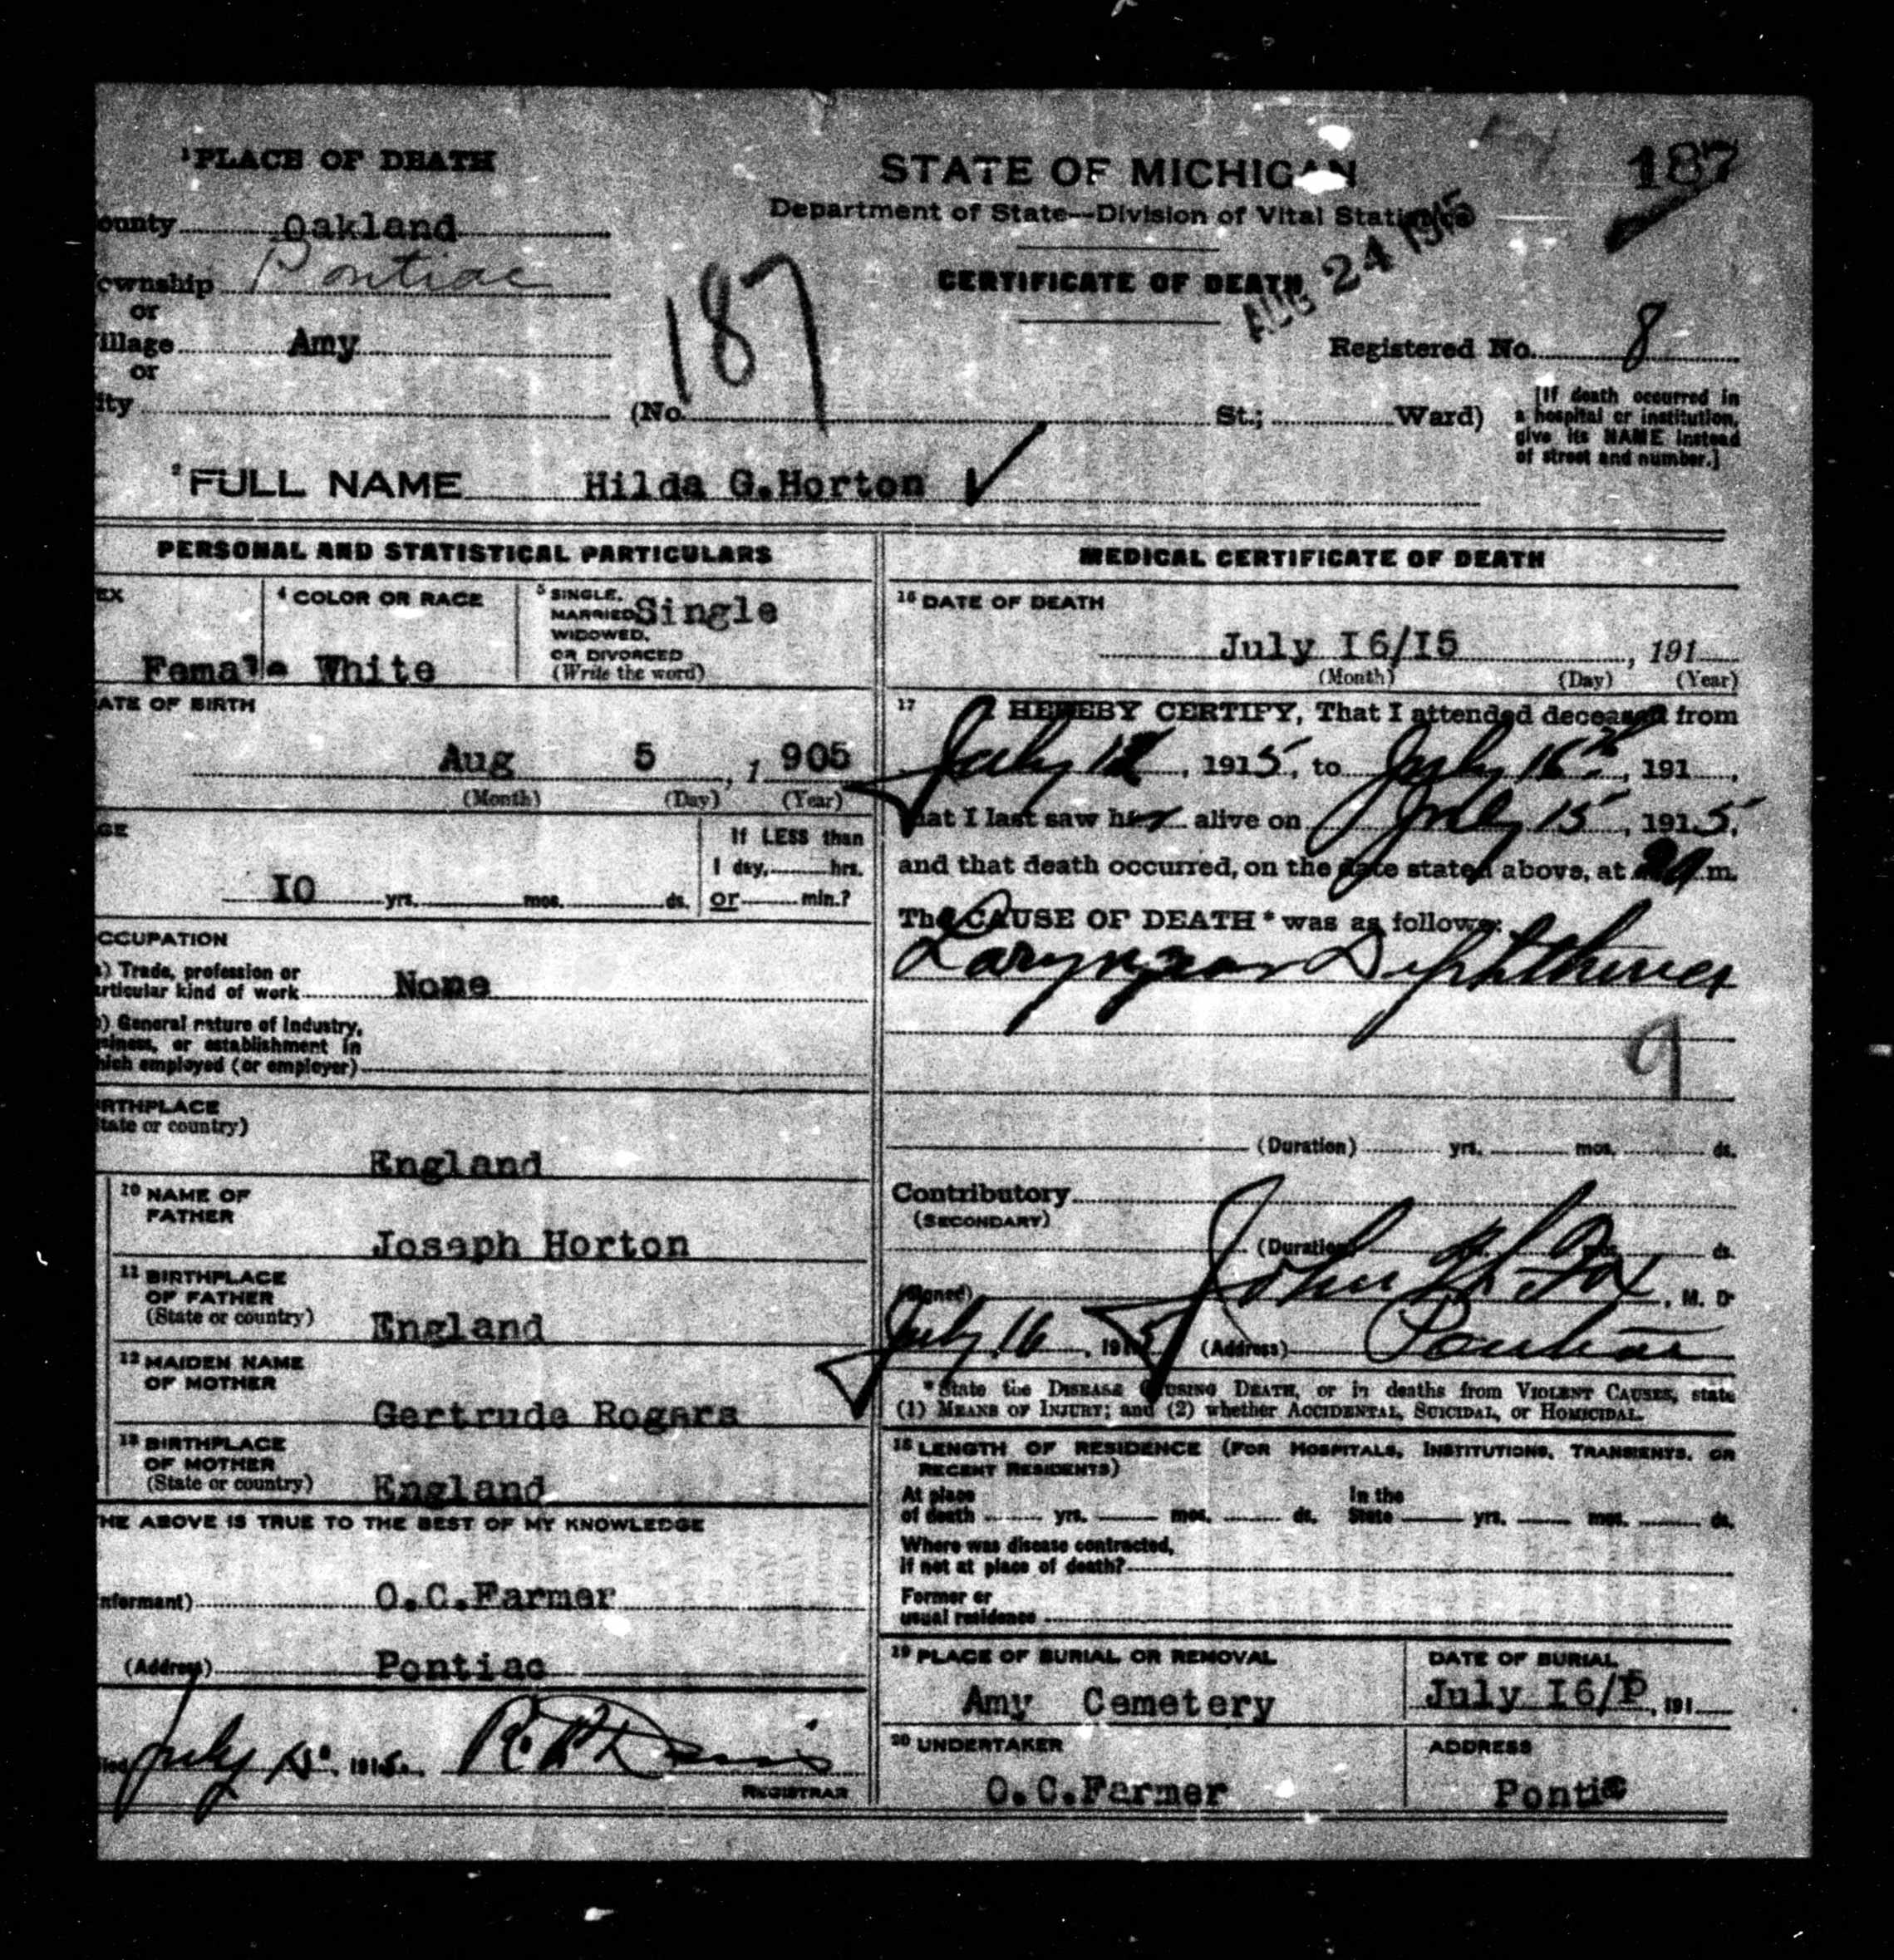 1 PLACE OF DEATH
STATE OF MICHIGAN
187
Department of State—Division of Vital Statistics
ounty Oakland
AUG 24 1915
ownship Pontiac
187
CERTIFICATE OF DEATH
or
illage Amy
Registered No. 8
or
ity (No. St.; Ward)
[If death occurred in
a hospital or institution,
give its NAME instead
of street and number.]
2 FULL NAME Hilda G.Horton
PERSONAL AND STATISTICAL PARTICULARS
EX
Female
4 COLOR OR RACE
White
5 SINGLE,
MARRIED Single
WIDOWED,
OR DIVORCED
(Write the word)
ATE OF BIRTH
Aug 5, 1 905
(Month) (Day) (Year)
GE
I0 yrs. mos. ds.
If LESS than
1 day, hrs.
or min.?
CCUPATION
) Trade, profession or
rticular kind of work None
) General nature of Industry,
siness, or establishment in
hich employed (or employer)
RTHPLACE
tate or country)
England
10 NAME OF
FATHER
Joseph Horton
11 BIRTHPLACE
OF FATHER
(State or country) England
12 MAIDEN NAME
OF MOTHER
Gertrude Rogers
13 BIRTHPLACE
OF MOTHER
(State or country) England
HE ABOVE IS TRUE TO THE BEST OF MY KNOWLEDGE
nformant) O.C.Farmer
(Address) Pontiac
July 1915. R. Davis
REGISTRAR
MEDICAL CERTIFICATE OF DEATH
16 DATE OF DEATH
July I6/I5, 191
(Month) (Day) (Year)
17 I HEREBY CERTIFY, That I attended deceased from
July 12, 1915, to July 16th, 191 ,
that I last saw her alive on July 15, 1915,
and that death occurred, on the date stated above, at m.
The CAUSE OF DEATH* was as follows:
Laryngear Diphtheria
9
(Duration) yrs. mos. ds.
Contributory
(SECONDARY)
(Duration) mos. ds.
(Signed) John Fox, M. D
July 16, 1915 (Address) Pontiac
*State the DISEASE CAUSING DEATH, or in deaths from VIOLENT CAUSES, state
(1) MEANS OF INJURY; and (2) whether ACCIDENTAL, SUICIDAL, or HOMICIDAL.
18 LENGTH OF RESIDENCE (FOR HOSPITALS, INSTITUTIONS, TRANSIENTS, OR
RECENT RESIDENTS)
At place In the
of death yrs. mos. ds. State yrs. mos. ds.
Where was disease contracted,
If not at place of death?
Former or
usual residence
19 PLACE OF BURIAL OR REMOVAL
Amy Cemetery
DATE OF BURIAL
July I6/ , 191
20 UNDERTAKER
O.C.Farmer
ADDRESS
Pontiac